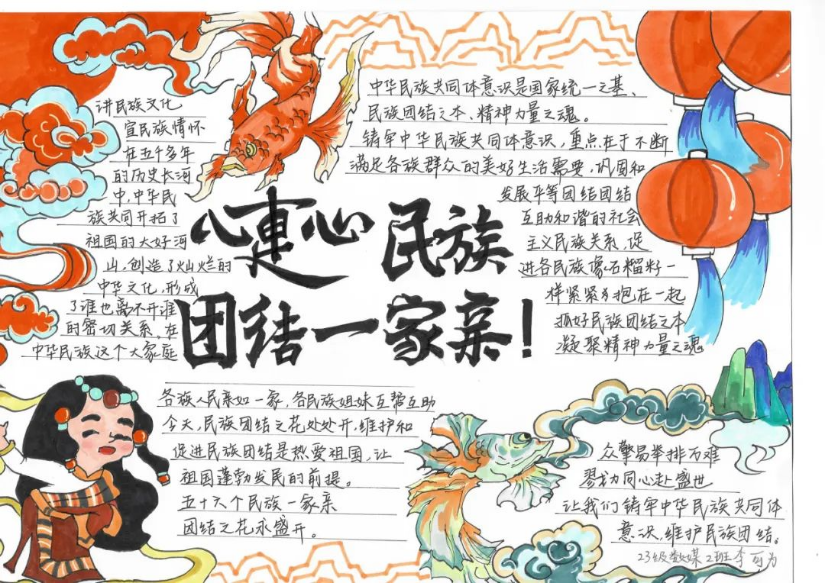 讲民族文化
宣民族情怀
在五千多年
的历史长河
中,中华民
族共同开拓了
祖国的大好河
山,创造了灿烂的
中华文化,形成
了谁也离不开谁
的密切关系,在
中华民族这个大家庭
中华民族共同体意识是国家统一之基、
民族团结之本、精神力量之魂。
铸牢中华民族共同体意识,重点在于不断
满足各族群众的美好生活需要,巩固和
发展平等团结团结
互助和谐的社会
主义民族关系,促
进各民族像石榴籽一
样紧紧抱在一起
抓好民族团结之本
凝聚精神力量之魂
心连心 民族
团结一家亲!
各族人民亲如一家,各民族姐妹互帮互助
今天,民族团结之花处处开,维护和
促进民族团结是热爱祖国,让
祖国蓬勃发民的前提。
五十六个民族一家亲
团结之花永盛开。
众擎易举排万难
勠力同心赴盛世
让我们铸牢中华民族共同体
意识,维护民族团结。
23级数媒2班李可为